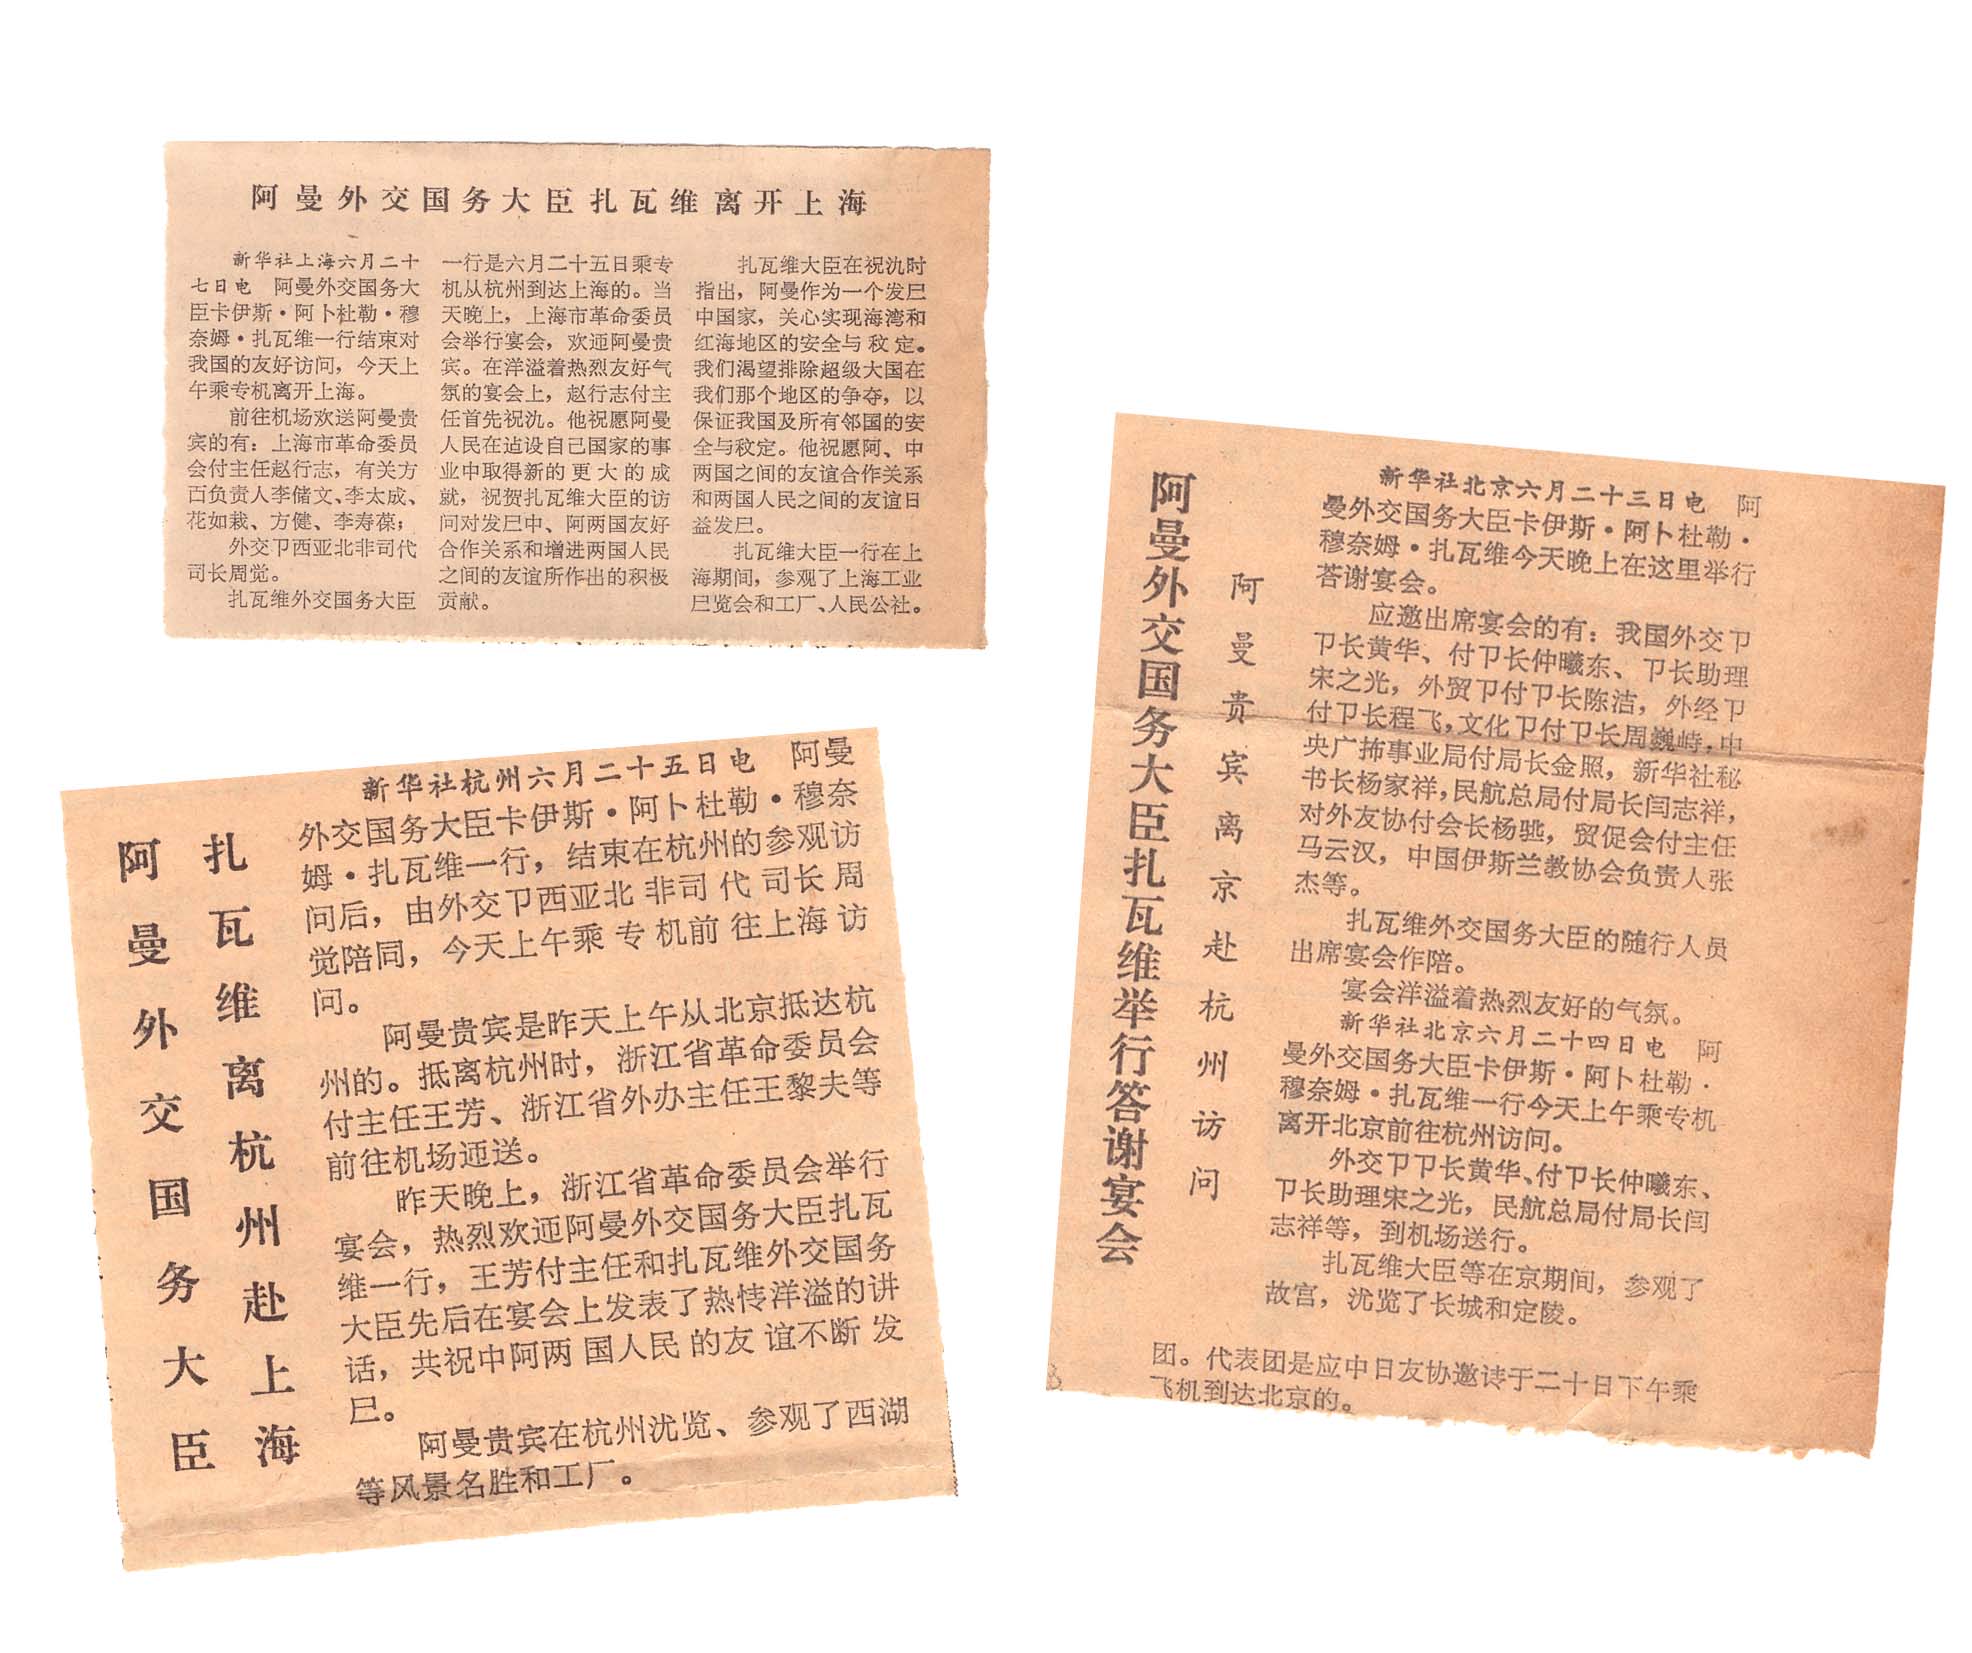 阿曼外交国务大臣扎瓦维离开上海
新华社上海六月二十
七日电 阿曼外交国务大
臣卡伊斯·阿卜杜勒·穆
奈姆·扎瓦维一行结束对
我国的友好访问，今天上
午乘专机离开上海。
前往机场欢送阿曼贵
宾的有：上海市革命委员
会付主任赵行志，有关方
面负责人李储文、李太成、
花如栽、方健、李寿葆；
外交卩西亚北非司代
司长周觉。
扎瓦维外交国务大臣
一行是六月二十五日乘专
机从杭州到达上海的。当
天晚上，上海市革命委员
会举行宴会，欢迊阿曼贵
宾。在洋溢着热烈友好气
氛的宴会上，赵行志付主
任首先祝氿。他祝愿阿曼
人民在迠设自己国家的事
业中取得新的更大的成
就，祝贺扎瓦维大臣的访
问对发展中、阿两国友好
合作关系和增进两国人民
之间的友谊所作出的积极
贡献。
扎瓦维大臣在祝氿时
指出，阿曼作为一个发展
中国家，关心实现海湾和
红海地区的安全与稳定。
我们渴望排除超级大国在
我们那个地区的争夺，以
保证我国及所有邻国的安
全与稳定。他祝愿阿、中
两国之间的友谊合作关系
和两国人民之间的友谊日
益发展。
扎瓦维大臣一行在上
海期间，参观了上海工业
展览会和工厂、人民公社。
阿曼外交国务大臣
扎瓦维离杭州赴上海
新华社杭州六月二十五日电 阿曼
外交国务大臣卡伊斯·阿卜杜勒·穆奈
姆·扎瓦维一行，结束在杭州的参观访
问后，由外交卩西亚北非司代司长周
觉陪同，今天上午乘专机前往上海访
问。
阿曼贵宾是昨天上午从北京抵达杭
州的。抵离杭州时，浙江省革命委员会
付主任王芳、浙江省外办主任王黎夫等
前往机场迊送。
昨天晚上，浙江省革命委员会举行
宴会，热烈欢迊阿曼外交国务大臣扎瓦
维一行，王芳付主任和扎瓦维外交国务
大臣先后在宴会上发表了热情洋溢的讲
话，共祝中阿两国人民的友谊不断发
展。
阿曼贵宾在杭州沋览、参观了西湖
等风景名胜和工厂。
阿曼外交国务大臣扎瓦维举行答谢宴会
阿曼贵宾离京赴杭州访问
新华社北京六月二十三日电 阿
曼外交国务大臣卡伊斯·阿卜杜勒·
穆奈姆·扎瓦维今天晚上在这里举行
荅谢宴会。
应邀出席宴会的有：我国外交卩
卩长黄华、付卩长仲曦东、卩长助理
宋之光，外贸卩付卩长陈洁，外经卩
付卩长程飞，文化卩付卩长周巍峙，中
央广抪事业局付局长金照，新华社秘
书长杨家祥，民航总局付局长闫志祥，
对外友协付会长杨骥，贸促会付主任
马云汉，中国伊斯兰教协会负责人张
杰等。
扎瓦维外交国务大臣的随行人员
出席宴会作陪。
宴会洋溢着热烈友好的气氛。
新华社北京六月二十四日电 阿
曼外交国务大臣卡伊斯·阿卜杜勒·
穆奈姆·扎瓦维一行今天上午乘专机
离开北京前往杭州访问。
外交卩卩长黄华、付卩长仲曦东、
卩长助理宋之光，民航总局付局长闫
志祥等，到机场送行。
扎瓦维大臣等在京期间，参观了
故宫，沋览了长城和定陵。
团。代表团是应中日友协邀请于二十日下午乘
飞机到达北京的。